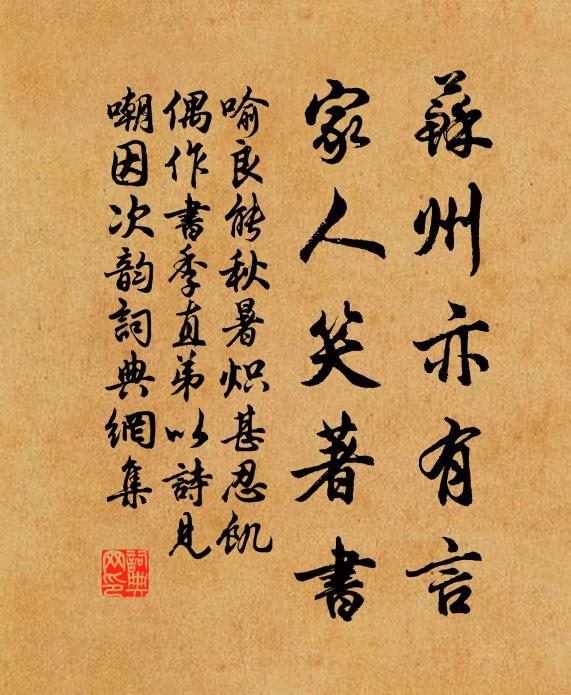 蘇州亦有言
家人笑著書
喻良能秋暑炽甚忍飢
偶作書季直弟以詩見
嘲因次韵詞典網集
詞典网印